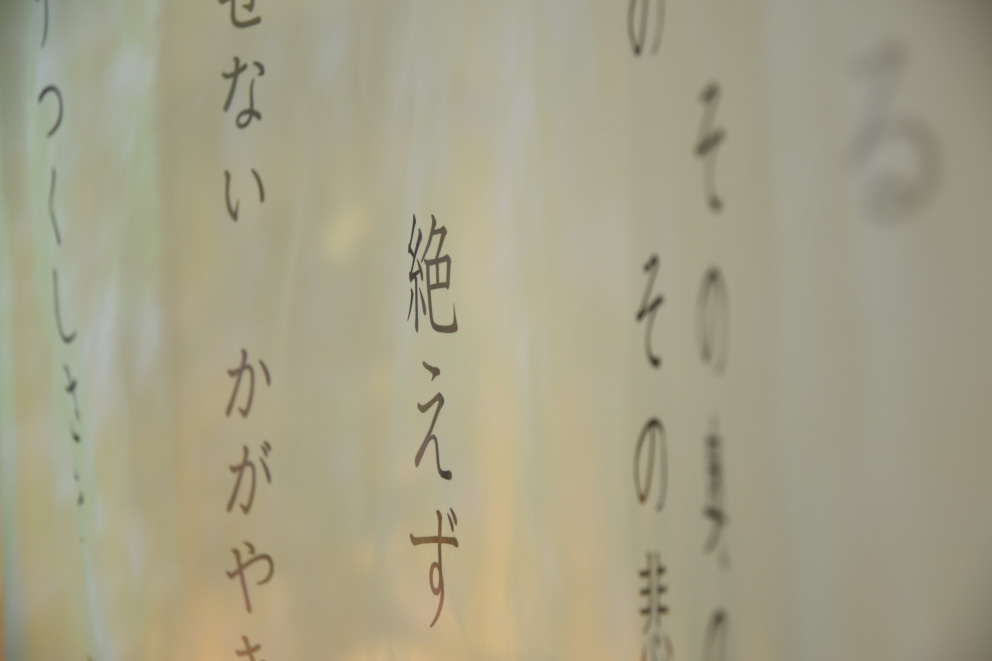 る
その
の その悲
絶えず
せない かがや
つくしさ